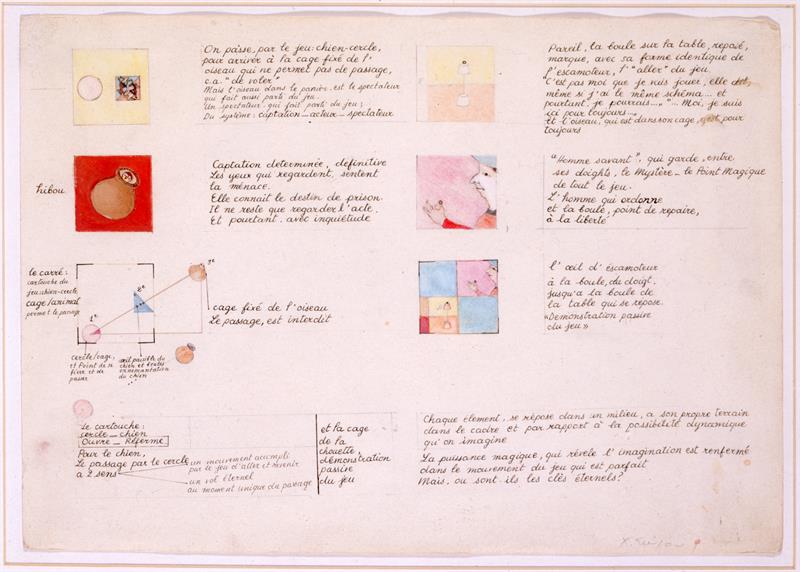 On passe, par le jeu: chien-cercle,
pour arriver à la cage fixé de l'
oiseau qui ne permet pas de passage,
c.a. "de voler"
Mais l'oiseau dans le panier est le spectateur
qui fait aussi parti du jeu.
Un spectateur qui fait parti du jeu;
Du système: captation_acteur_spectateur
Pareil, la boule sur la table, reposé,
marque, avec sa forme identique de
l'escamoteur, l'"aller" du jeu.
"C'est pas moi que je vais jouer, elle dit,
même si j'ai le même schéma... et
pourtant, je pourrais..." "... Moi, je suis
ici pour toujours...
Et l'oiseau, qui est dans son cage, est pour
toujours
hibou
Captation determinée, définitive
Les yeux qui regardent, sentent
la ménace.
Elle connaît le destin de prison.
Il ne reste que regarder l'acte.
Et pourtant, avec inquiétude
"Homme savant", qui garde, entre
ses doights, le Mystère_le Point Magique
de tout le jeu.
L'homme qui ordonne
et la boule, point de repaire,
à la liberté
le carré:
cartouche du
jeu:chien-cercle
cage/animal
permet le passage
cage fixé de l'oiseau
Le passage, est interdit
cercle/cage,
et Point de
fixe et de
passer
œil paisible du
chien et toutes
du chien
l'œil d'éscamoteur
à la boule, du doigt,
jusqu'à la boule de
la table qui se repose.
«Demonstration passive
du jeu»
Le cartouche:
cercle_chien
Ouvre_Réferme
Pour le chien,
Le passage par le cercle
a 2 sens
un mouvement accompli
par le jeu d'aller et revenir
un vol éternel
au moment unique du passage
et la cage
de la
chouette,
démonstration
passive
du jeu
Chaque élement, se répose dans un milieu, a son propre terrain
dans le cadre et par rapport à la possibilité dynamique
qu'on imagine
La puissance magique, qui révèle l'imagination est renfermé
dans le mouvement du jeu qui est parfait
Mais, ou sont ils les clés éternels?